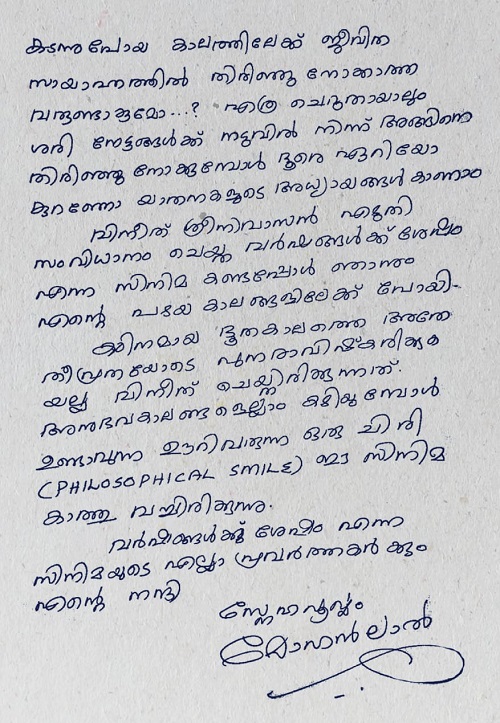 കടന്നുപോയ കാലത്തിലേക്ക് ജീവിത
സായാഹ്നത്തിൽ തിരിഞ്ഞു നോക്കാത്ത
വരുണ്ടാകുമോ...? എത്ര ചെറുതായാലും
ശരി നേട്ടങ്ങൾക്ക് നടുവിൽ നിന്ന് അങ്ങിനെ
തിരിഞ്ഞു നോക്കുമ്പോൾ ദൂരെ ഏറിയോ
കുറഞ്ഞോ യാതനകളുടെ അധ്യായങ്ങൾ കാണാം
വിനീത് ശ്രീനിവാസൻ എഴുതി
സംവിധാനം ചെയ്ത വർഷങ്ങൾക്ക് ശേഷം
എന്ന സിനിമ കണ്ടപ്പോൾ ഞാനും
എന്റെ പഴയ കാലങ്ങളിലേക്ക് പോയി-
കഠിനമായ ഭൂതകാലത്തെ അതേ
തീവ്രതയോടെ പുനരാവിഷ്കരിക്കുക
യല്ല വിനീത് ചെയ്തിരിക്കുന്നത്.
അനുഭവകാലങ്ങളെല്ലാം കഴിയുമ്പോൾ
ഉണ്ടാവുന്ന ഊറിവരുന്ന ഒരു ചിരി
(PHILOSOPHICAL SMILE) ഈ സിനിമ
കാത്തു വച്ചിരിക്കുന്നു.
വർഷങ്ങൾക്കു ശേഷം എന്ന
സിനിമയുടെ എല്ലാ പ്രവർത്തകർക്കും
എന്റെ നന്ദി
സ്നേഹപൂർവ്വം
മോഹൻലാൽ